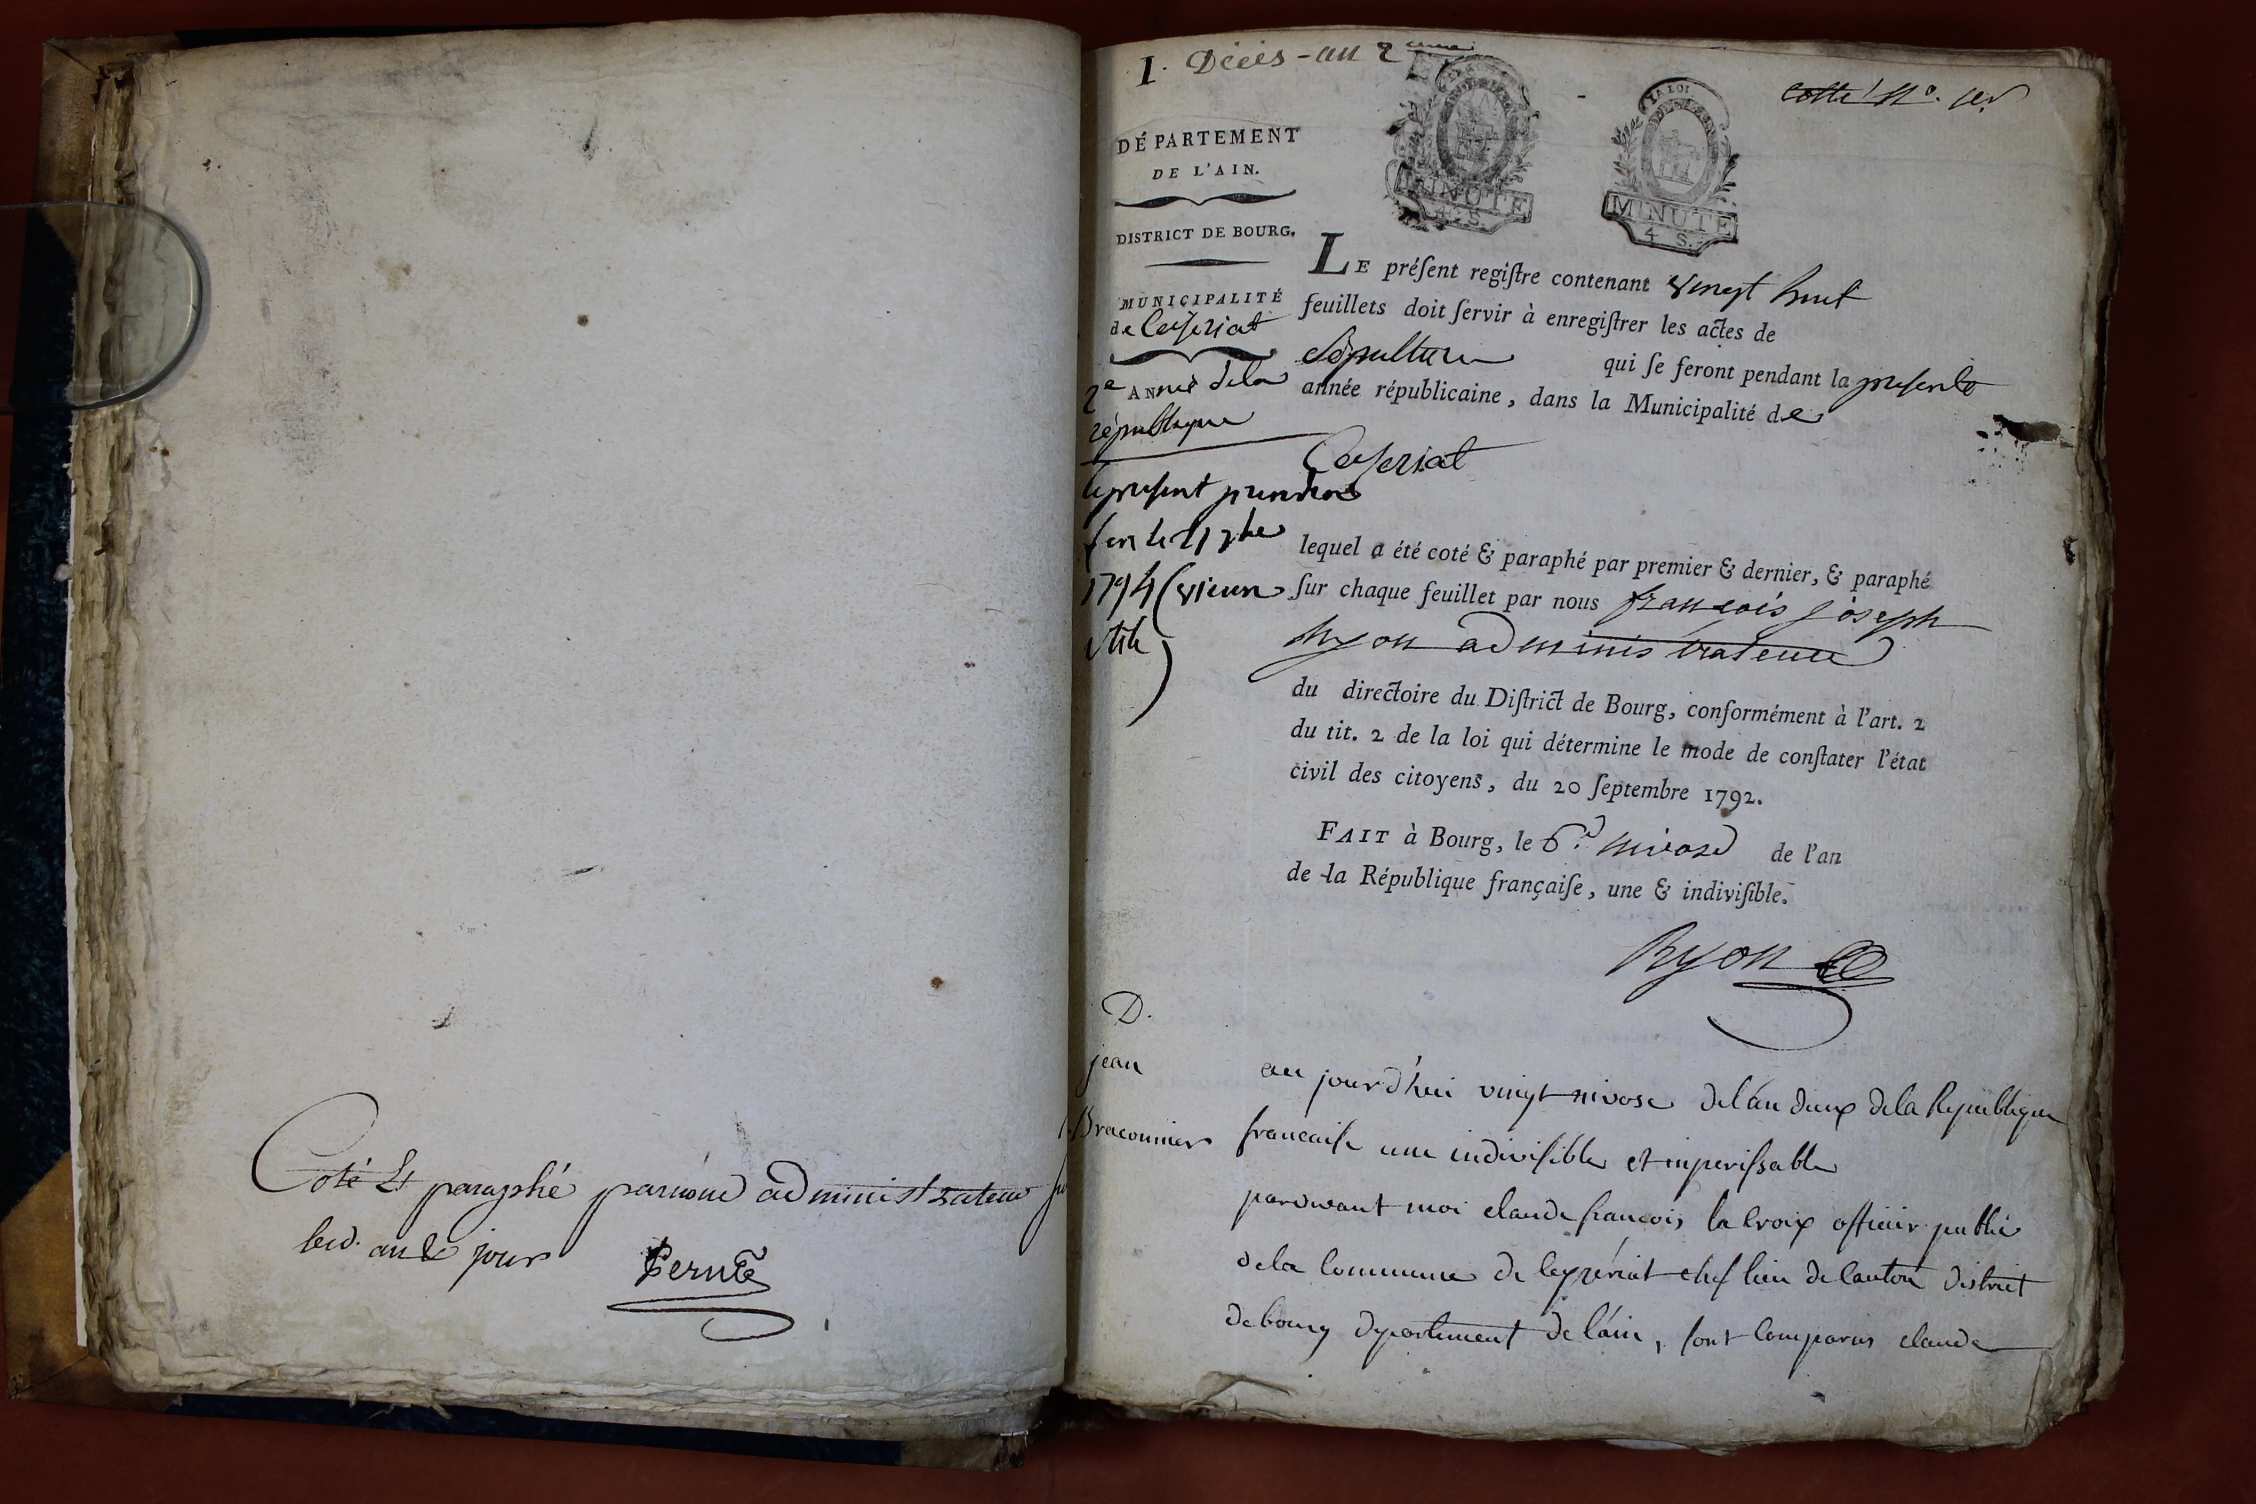 Coté Et paraphé par nous administrateur
led. an & jour
Perruce
I. Décés - an 2eme
Cotté No. 1er
LA LOI
MINUTE
4 S.
MINUTE
4 S.
DÉPARTEMENT
DE L'AIN.
DISTRICT DE BOURG.
MUNICIPALITÉ
de Ceyseriat
2e ANNÉE de la
république
le present prendra
fin le 21 7bre
1794 (vieux
stile)
LE préſent regiſtre contenant vingt huit
feuillets doit ſervir à enregiſtrer les actes de
Sépulture qui ſe feront pendant la presente
année républicaine, dans la Municipalité de
Ceyseriat
lequel a été coté & paraphé par premier & dernier, & paraphé
ſur chaque feuillet par nous françois joseph
Ryon administrateur
du directoire du Diſtrict de Bourg, conformément à l'art. 2
du tit. 2 de la loi qui détermine le mode de conſtater l'état
civil des citoyens, du 20 ſeptembre 1792.
FAIT à Bourg, le 6.e nivose de l'an
de la République françaiſe, une & indiviſible.
Ryon
D.
jean
Braconnier
au jourd'hui vingt nivose de l'an deux de la Republique
francaise une indivisible et imperissable
pardevant moi claude françois la croix officier public
de la commune de Ceyzériat chef lieu de canton district
de bourg departement de l'ain, sont comparus claude